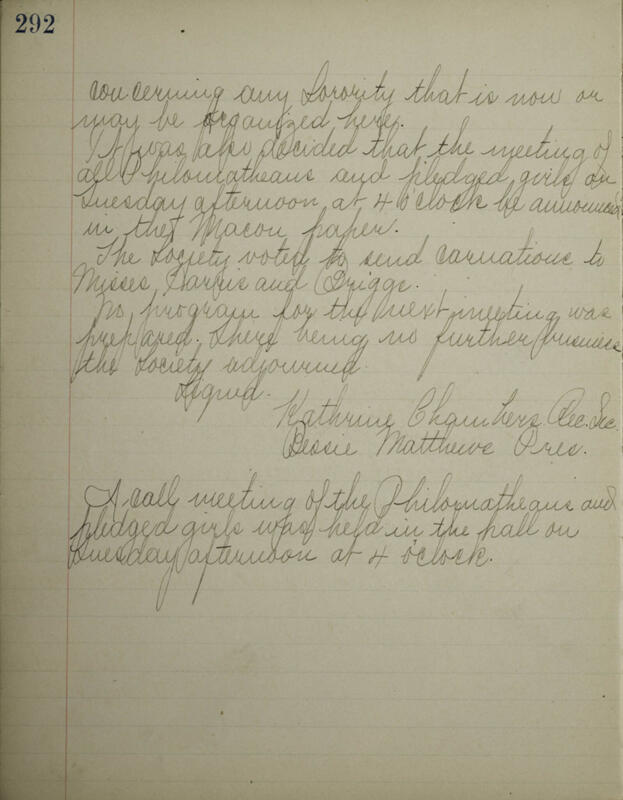 292
concerning any Sorority that is now or
may be organized here.
It was also decided that the meeting of
all Philomatheans and pledged girls on
Tuesday afternoon, at 4 o'clock be announced
in the Macon paper.
The Society voted to send carnations to
Misses Harris and Griggs.
No program for the next meeting was
prepared. There being no further business
the Society adjourned.
Signed.
Kathrine Chambers. Rec. Sec.
Bessie Matthews Pres.
A call meeting of the Philomatheans and
pledged girls was held in the hall on
Tuesday afternoon at 4 o'clock.